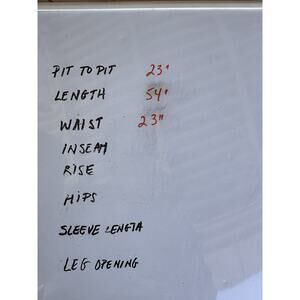 PIT TO PIT 23"
LENGTH 54"
WAIST 23"
INSEAM
RISE
HIPS
SLEEVE LENGTH
LEG OPENING